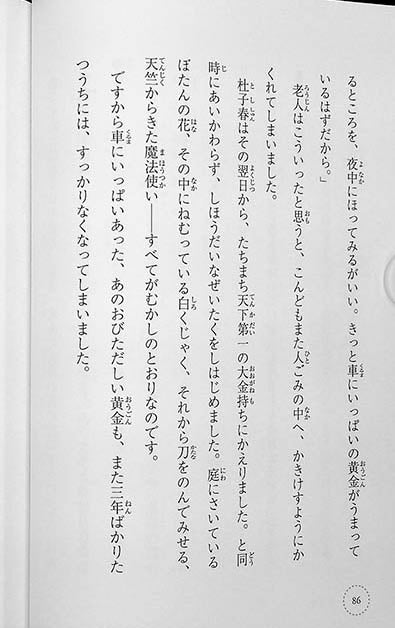 るところを、夜中にほってみるがいい。きっと車にいっぱいの黄金がうまって
いるはずだから。」
老人はこういったと思うと、こんどもまた人ごみの中へ、かきけすようにか
くれてしまいました。
杜子春はその翌日から、たちまち天下第一の大金持ちにかえりました。と同
時にあいかわらず、しほうだいなぜいたくをしはじめました。庭にさいている
ぼたんの花、その中にねむっている白くじゃく、それから刀をのんでみせる、
天竺からきた魔法使い――すべてがむかしのとおりなのです。
ですから車にいっぱいあった、あのおびただしい黄金も、また三年ばかりた
つうちには、すっかりなくなってしまいました。
86